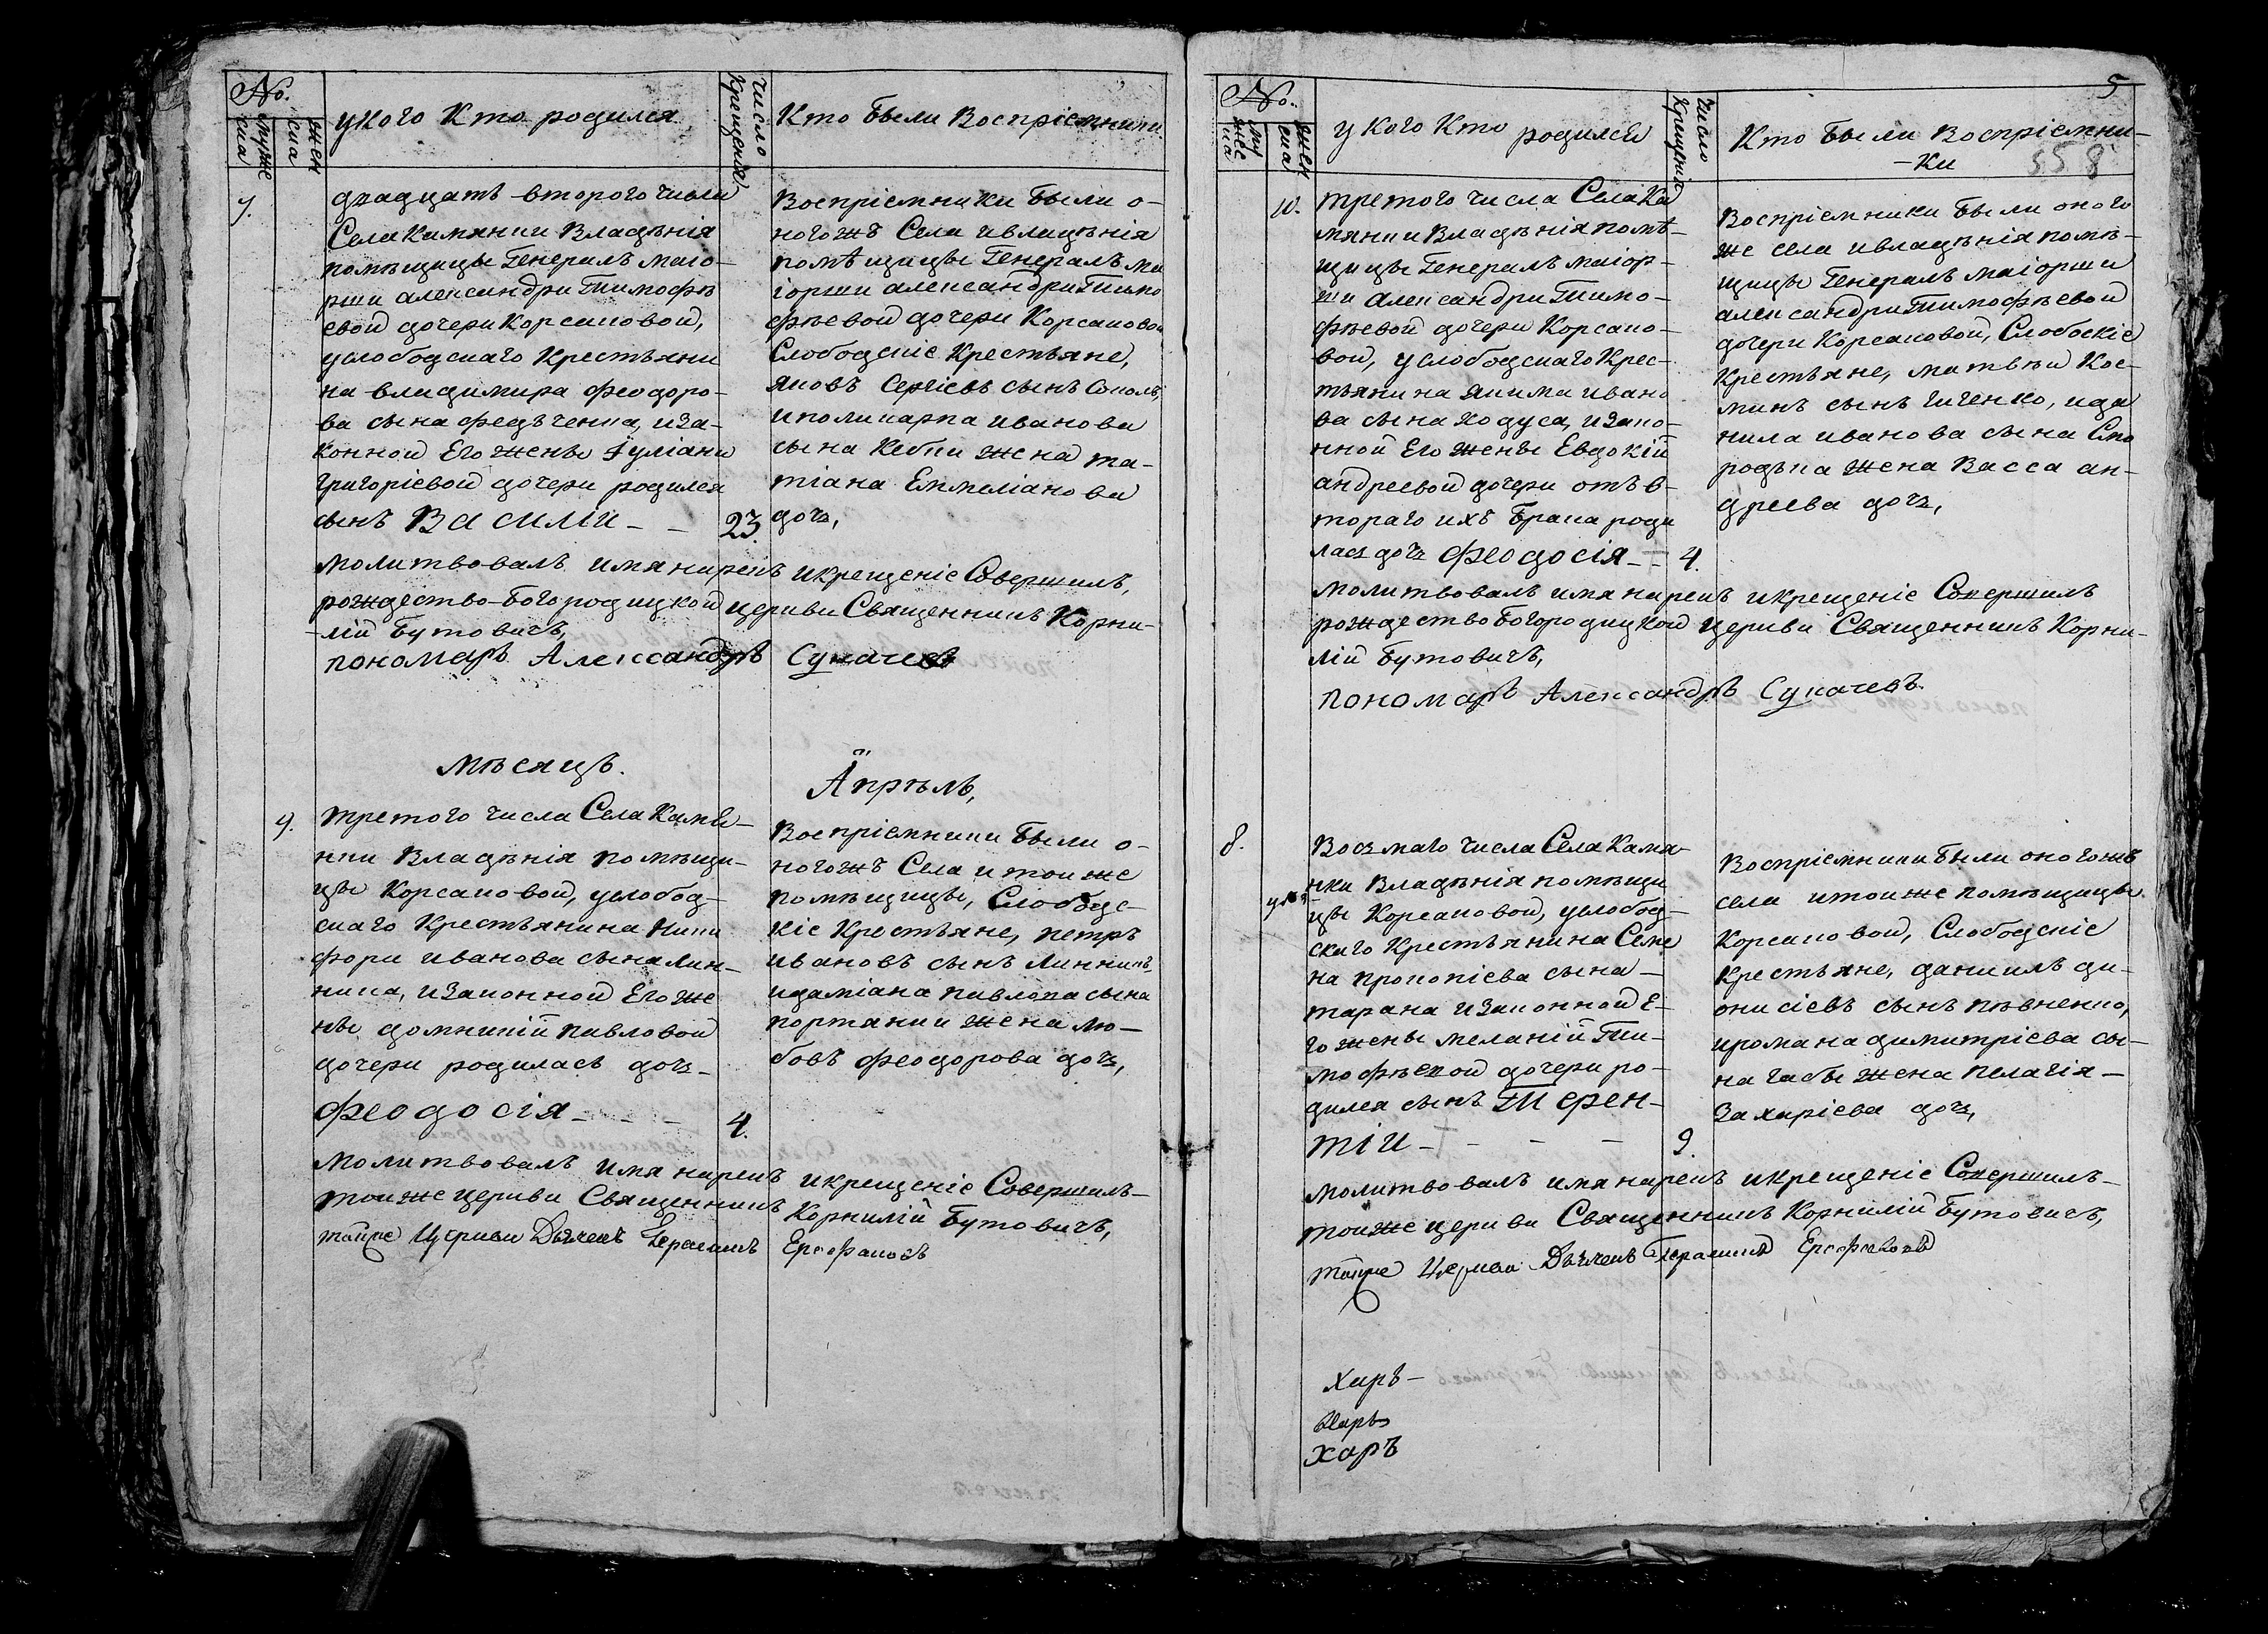 No.
муже
ска
жен
ска
у кого Кто родился
число
Крещения
Кто были Воспріемники
7.
двадцать второго числа
Села Камянки Владѣнія
помѣщицы Генералъ маіо-
рши александри Тимофѣ
евой дочери Корсаковой,
у слободскаго Крестьяни
на владимира феодоро-
ва сына федъченка, и за-
конной Его жены Іуліани
григоріевой дочери родился
сынъ Василій - - 23.
Воспріемники были о-
ногожъ Села и владѣнія
помѣщицы Генералъ ма
іорши александри Тимо
фѣевой дочери Корсаковой
Слободскіе Крестьяне,
яковъ Сергіевъ сынъ Соколъ,
и поликарпа иванова
сына Кебки жена та-
тіана Еммеліанова
дочь,
молитвовалъ имя нарекъ и крещеніе Совершилъ,
рождество-богородицкой церкви Священникъ Корни-
-лій Бутовичъ,
пономарь Александръ Сукачевъ
мѣсяцъ. Апрѣль,
9.
третого числа Села Камя-
нки Владѣнія помѣщи-
цы Корсаковой, у слобод-
скаго Крестьянина Ники
фора иванова сына Лин-
ника, и Законной Его же
ны домникій павловой
дочери родилась дочь -
феодосія - - - 4.
Воспріемники были о-
ногожъ Села и тои же
помѣщицы, Слободс-
кіе Крестьяне, петръ
ивановъ сынъ Линникъ,
и даміана павлова сына
портянки жена лю-
бовь феодорова дочь,
молитвовалъ имя нарекъ и крещеніе Совершилъ -
тоиже церкви Священникъ Корнилій Бутовичъ,
тойже Церкви Дьячекъ Герасимъ Ерофаловъ
5
No.
му
жес
ка
жен
ска
у кого Кто родился
Число
Крещения
Кто были воспріемни-
-ки
558
10.
третого числа Села Ка
мянки Владѣнія помѣ-
щицы Генералъ маіор-
ши александри Тимо-
фѣевой дочери Корсако-
вой, у слободскаго Крес-
тьянина якима ивано
ва сына ходуса, и Зако-
нной Его жены Евдокій
андреевой дочери отъ в-
тораго ихъ брака роди
лась дочь феодосія - - 4.
Воспріемники были оного
же села и владѣнія помѣ-
щицы Генералъ маіорши
александри Тимофѣевой
дочери Корсаковой, Слобоскіе
Крестьяне, матвѣй Кос-
минъ сынъ гиченко, и да
нила иванова сына Ско
родѣка жена Васса ан-
дреева дочь,
молитвовалъ имя нарекъ и крещеніе Совершилъ
рождество Богородицкой Церкви Священникъ Корни-
лій Бутовичъ,
пономарь Александръ Сукачевъ.
8.
Восьмаго числа Села Камя-
нки Владѣнія помѣщи
цы Корсаковой, у слобод-
скаго Крестьянина Семе
на прокопіева сына -
тарана и Законной Е-
го жены меланій Ти-
мофѣевой дочери ро-
дился сынъ Терен-
тій - - - - 9.
Воспріемники были оногожъ
села и тоиже помѣщицы
Корсаковой, Слободскіе
крестьяне, даніилъ ди-
онисіевъ сынъ пѣвненко,
и романа димитріева сы-
на габы жена пелагія -
Захаріева дочь,
молитвовалъ имя нарекъ и крещеніе Совершилъ -
тоиже церкви Священникъ Корнилій Бутовичъ,
тойже Церкви Дьячекъ Герасимъ Ерофаловъ
Харь -
Харь